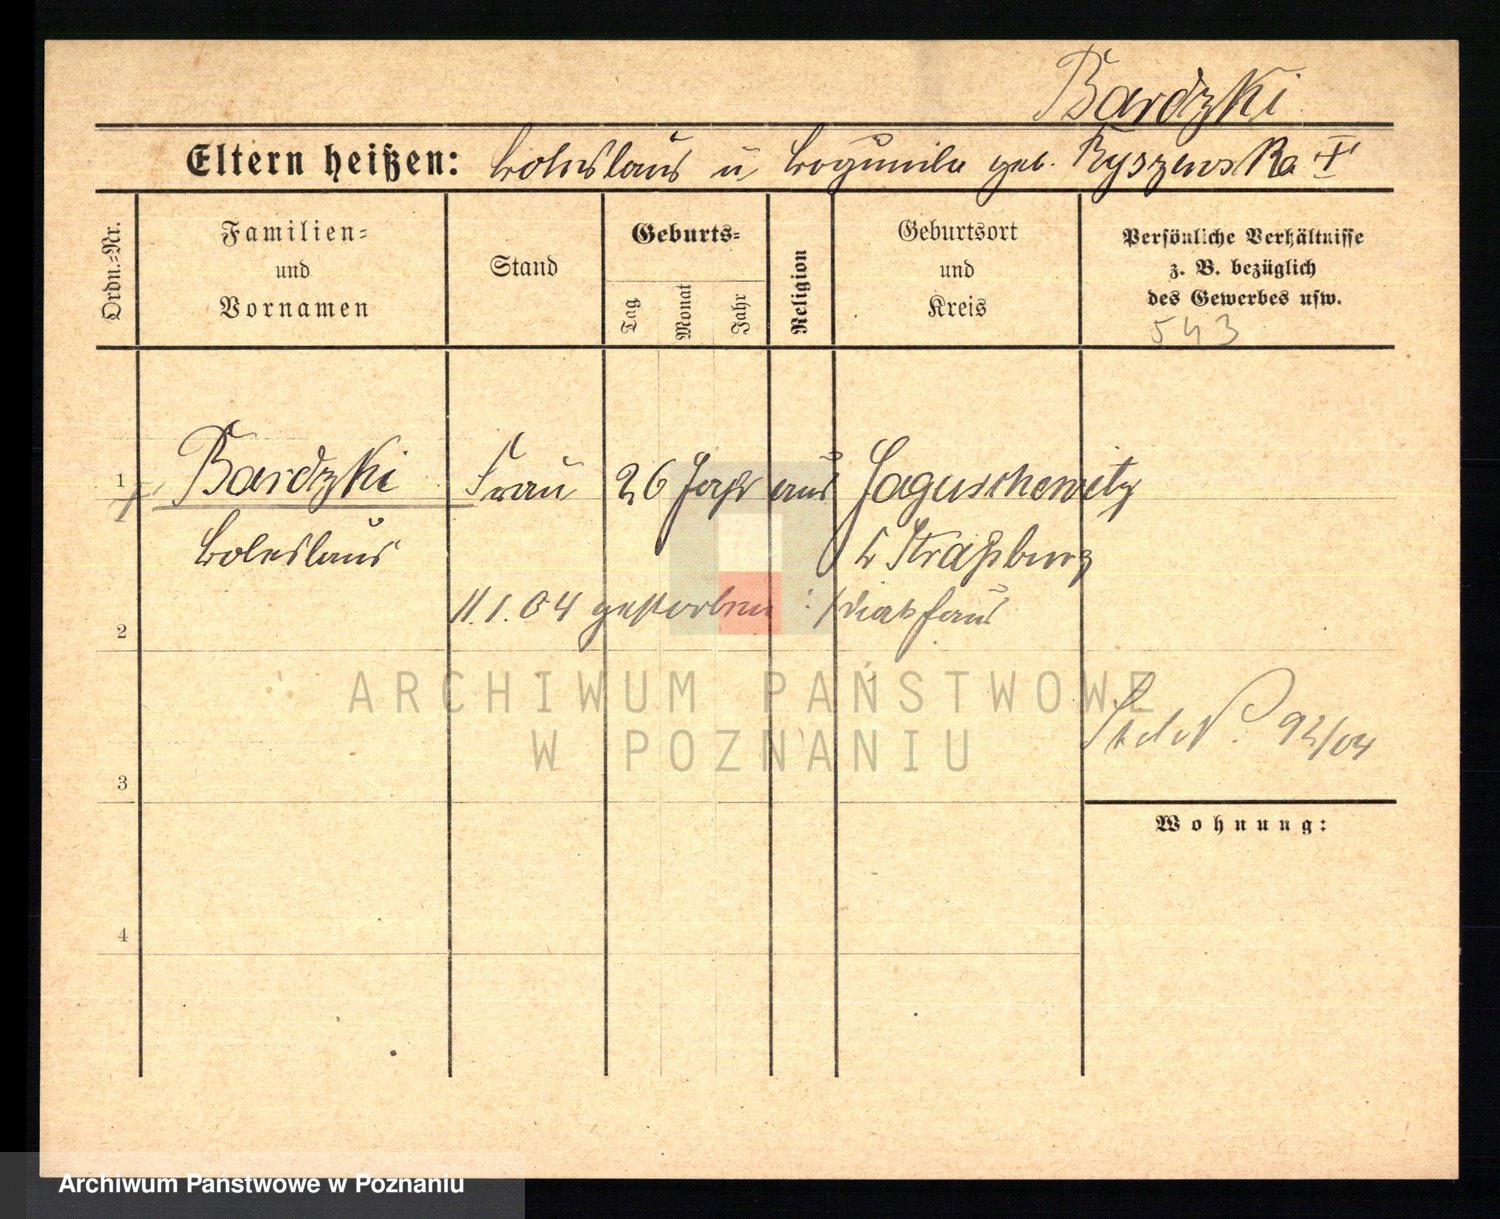 Bardzki
Eltern heißen: Boleslaus u Bogumila geb. Ryszewska †
Ordn.=Nr.
Familien=
und
Vornamen
Stand
Geburts=
Tag
Monat
Jahr
Religion
Geburtsort
und
Kreis
Persönliche Verhältnisse
z. B. bezüglich
des Gewerbes usw.
543
1 Bardzki Frau 26 Jahr aus Jaguschewitz
Boleslaus Straßburg
11.1.04 gestorben
2
ARCHIWUM PAŃSTWOWE
W POZNANIU
92/04
3
Wohnung:
4
Archiwum Państwowe w Poznaniu